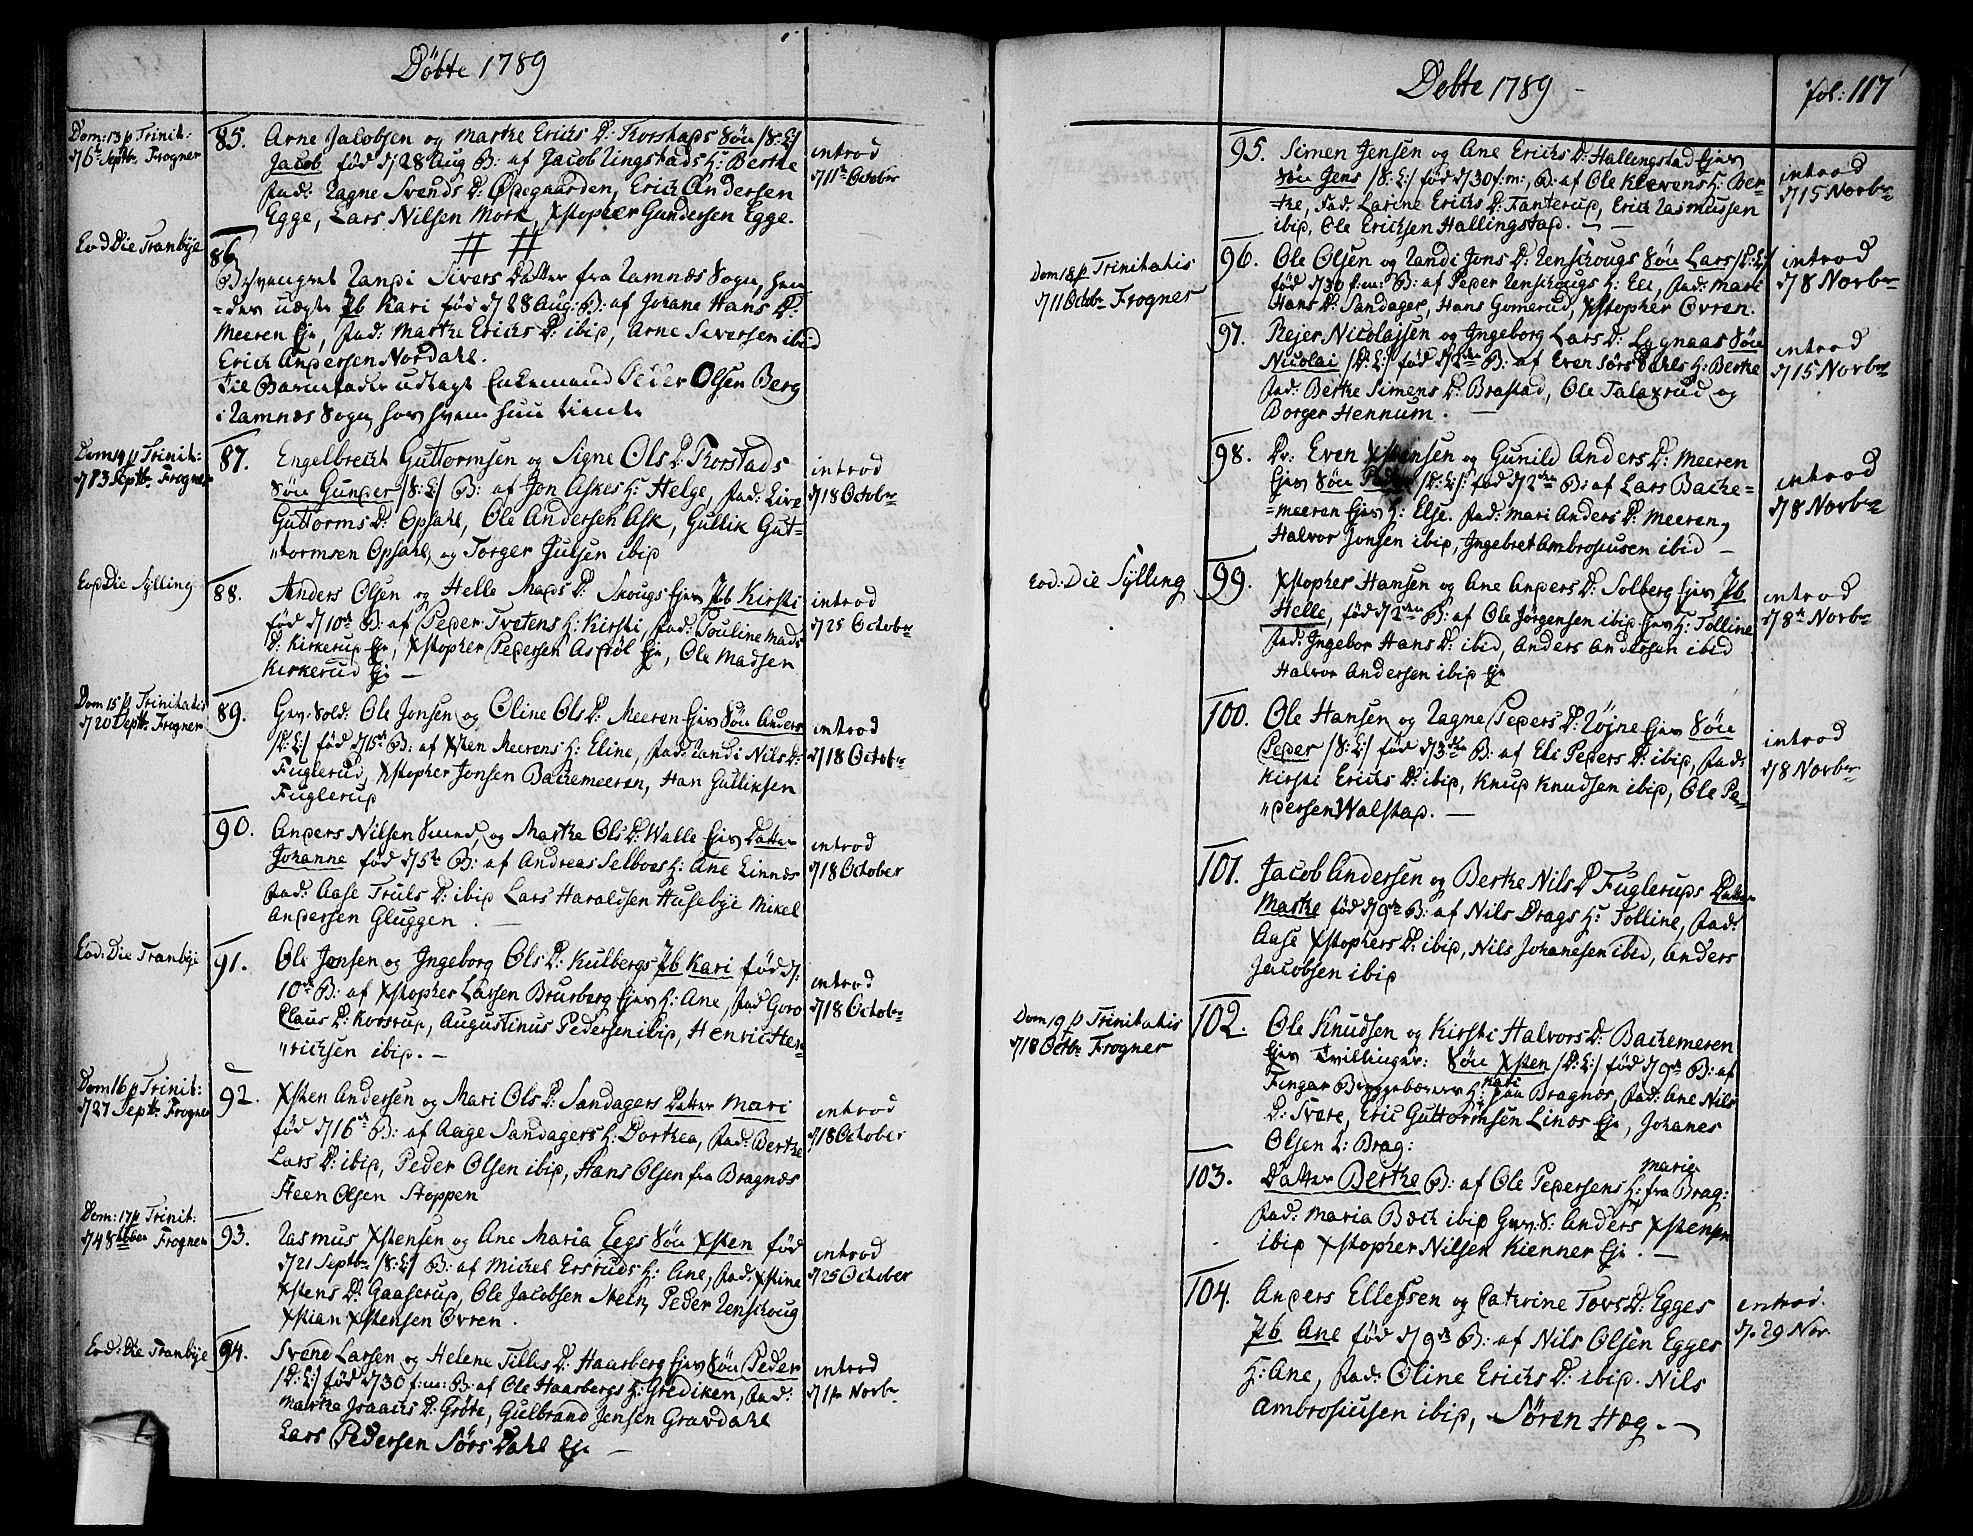 Döbte 1789
Dom: 13 p Trinit:
d 6te Septbr Frogner
85. Arne Jacobsen og Marthe Erichs D: Thorstads Søn /S:E/
Jacob fød d 28 Aug B: af Jacob Ringstads H: Berthe
Fad: Ragne Svends D: Ødegaarden, Erich Andersen
Egge, Lars Nilsen Mork, Xstopher Gundersen Egge.
introd
d 11te October
Eod Die Tranbye
86
Besvangret Randi Sivers Datter fra Ramnæs Sogn, hen-
=des uægte Pb Kari fød d 28 Aug: B: af Johane Hans D:
Meeren Eje, Fad: Marthe Erichs D: ibid, Arne Seversen ibid
Erich Andersen Nordahl.
Til Barnefader udlagt Enkemand Peder Olsen Berg
i Ramnæs Sogn, hos hvem hun tiente
Dom 14 p Trinit:
d 13 Septbr Frogner
87. Engelbrecht Guttormsen og Signe Ols D: Thorstads
Søn Gunder /S:E/ B: af Jon Askes H: Helge, Fad: Live
Guttorms D: Opsahl, Ole Andersen Ask, Gullik Gut-
"tormsen Opsahl, og Torger Julsen ibid
introd
d 18 Octobr
Eod Die Sylling
88. Anders Olsen og Helle Mads D: Skougs Ejer Pb Kirsti
fød d 10de B: af Peder Tvetens H: Kirsti, Fad: Pouline Mads
D: Kirkerud Eje, Xstopher Pedersen Askrøl Eje, Ole Madsen
Kirkerud Eje —
introd
d 25 Octobr
Dom 15 p Trinitatis
d 20 Septbr Frogner
89. Gev: Sold: Ole Jonsen og Oline Ols D: Meeren Ejer Søn Anders
/D:E/ fød d 15de B: af Xsten Meerens H: Eline, Fad: Randi Nils D:
Fuglerud, Xstopher Jonsen Bachemeeren, Han Gulliksen
Fuglerud
introd
d 18 Octob:
90. Anders Nilsen Smed, og Marthe Ols D: Walle Ejer Datter
Johanne fød d 5te B: af Andreas Selboes H: Ane Linnæs
Fad: Aase Truls D: ibid Lars Haraldsen Husebye Mikel
Andersen Gluggen. —
introd
d 18 October
Eod: Die Tranbye
91. Ole Jensen og Ingeborg Ols D: Kulbergs Pb Kari fød d.
10de B: af Xstopher Larsen Brusberg Ejer H: Ane, Fad Goro
Claus D: Korsrud, Augustinus Pedersen ibid, Henric Hen-
"richsen ibid. —
introd
d 18 Octob:
Dom 16 p Trinit:
d 27 Septbr: Frogner
92. Xsten Andersen og Mari Ols D: Sandagers Datter Mari
fød d 16de B: af Aage Sandagers H: Dorthea, Fad: Berthe
Lars D: ibid, Peder Olsen ibid, Hans Olsen fra Bragnæs
Steen Olsen Stoppen
introd
d 18 October
Dom: 17 p Trinit:
d 4 8tober Frogner
93. Rasmus Xstensen og Ane Maria Eegs Søn Xsten fød
d 21 Septbr /S:E/ B: af Michel Ersruds H: Ane, Fad: Xstine
Xstens D: Gaaserud, Ole Jacobsen Steen, Peder Renschoug
Xstian Xstensen Øvren.
introd
d 25 October
Eod: Die Tranbye
94. Svend Larsen og Helene Tillus D: Haarberg Ejer Søn Peder
/D:E/ fød d 30 f:m: B: af Ole Haarbergs H: Grediken, Fad:
Marthe Isaachs D: Grøte, Gulbrand Jensen Gravdahl
Lars Pedersen Sørs Dahl Eje —
introd
d 1te Norbr
Debte 1789 –
fol: 117
95. Simen Jensen og Ane Erichs D: Hallingstad Ejer
Søn Jens /S:E/ fød d 30 f:m:, B: af Ole Klevens H: Ber-
=the, Fad: Larine Erichs D: Fanterud, Erich Rasmussen
ibid, Ole Erichsen Hallingstad. — —
introd
d 15 Norbr
Dom 18 p Trinitatis
d 11 Octobr Frogner
96. Ole Olsen og Randi Jons D: Renschougs Søn Lars /D:E/
fød d 30 f:m: B: af Peder Renschougs H: Eli, Fad: Mari
Hans D: Sandager, Hans Gomerud, Xstopher Øvren.
introd
d 8 Norbr
97. Rejer Nicolajsen og Ingeborg Lars D: Lygnaas Søn
Nicolai /D:E/ fød d 2den B: af Even Sørs Dahls H: Berthe
Fad: Berthe Simens D: Brastad, Ole Taladrud og
Borger Hennum. —
introd
d 15 Norbr
98. Dr: Even Xstensen og Gunild Anders D: Meeren
Ejer Søn Peder /D:E/ fød d 2den B: af Lars Bache=
=meeren Ejer H: Else. Fad: Mari Anders D: Meeren,
Halvor Jonsen ibid, Ingebret Ambrosiusen ibid —
introd
d 8 Norbr
Eod: Die Sylling
99. Xstopher Hansen og Ane Anders D: Solberg Ejer Pb
Helle, fød d 2den B: af Ole Jørgensen ibid Ejer H: Tolline
Fad: Ingebor Hans D: ibid, Anders Andersen ibid
Halvor Andersen ibid Eje
introd
d 8de Norbr
100. Ole Hansen og Ragne Peders D: Røjne Ejer Søn
Peder /S:E/ fød d 3die B: af Eli Peders D: ibid, Fad:
Kirsti Erichs D: ibid, Knud Knudsen ibid, Ole Pe-
"dersen Walstad. —
introd
d 8 Norbr
101. Jacob Andersen og Berthe Nils D Fugleruds Datter
Marthe fød d 9de B: af Nils Drags H: Tolline, Fad:
Aase Xstophers D: ibid, Nils Johanesen ibid, Anders
Jacobsen ibid
Dom 19 p Trinitatis
d 18 Octbr Frogner
102. Ole Knudsen og Kirsti Halvors D: Bachemeren
Ejer Tvillinger: Søn Xsten /D:E/ fød d 9de B: af
Kari
Fingar Byggebærer H: paa Bragnøs, Fad: Ane Nils
D: Svare, Eric Guttormsen Linæs Eje, Johanes
Olsen L: Brag:
103. Marie
Datter Berthe B: af Ole Pedersens H: fra Brag:
Fad: Maria Boeck ibid Gev: S: Anders Xstensen
ibid Xstopher Nilsen Kienner Eje. —
104. Anders Ellefsen og Catrine Tovs D: Egges
Pb Ane fød d 9de B: af Nils Olsen Egges
H: Ane, Fad: Oline Erichs D: ibid. Nils
Ambrosiusen ibid, Søren Hæg. —
introd.
d. 29 Nov.